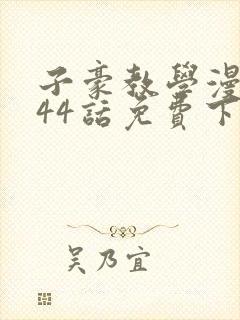 子豪教學漫
44話免費下
吴乃宜